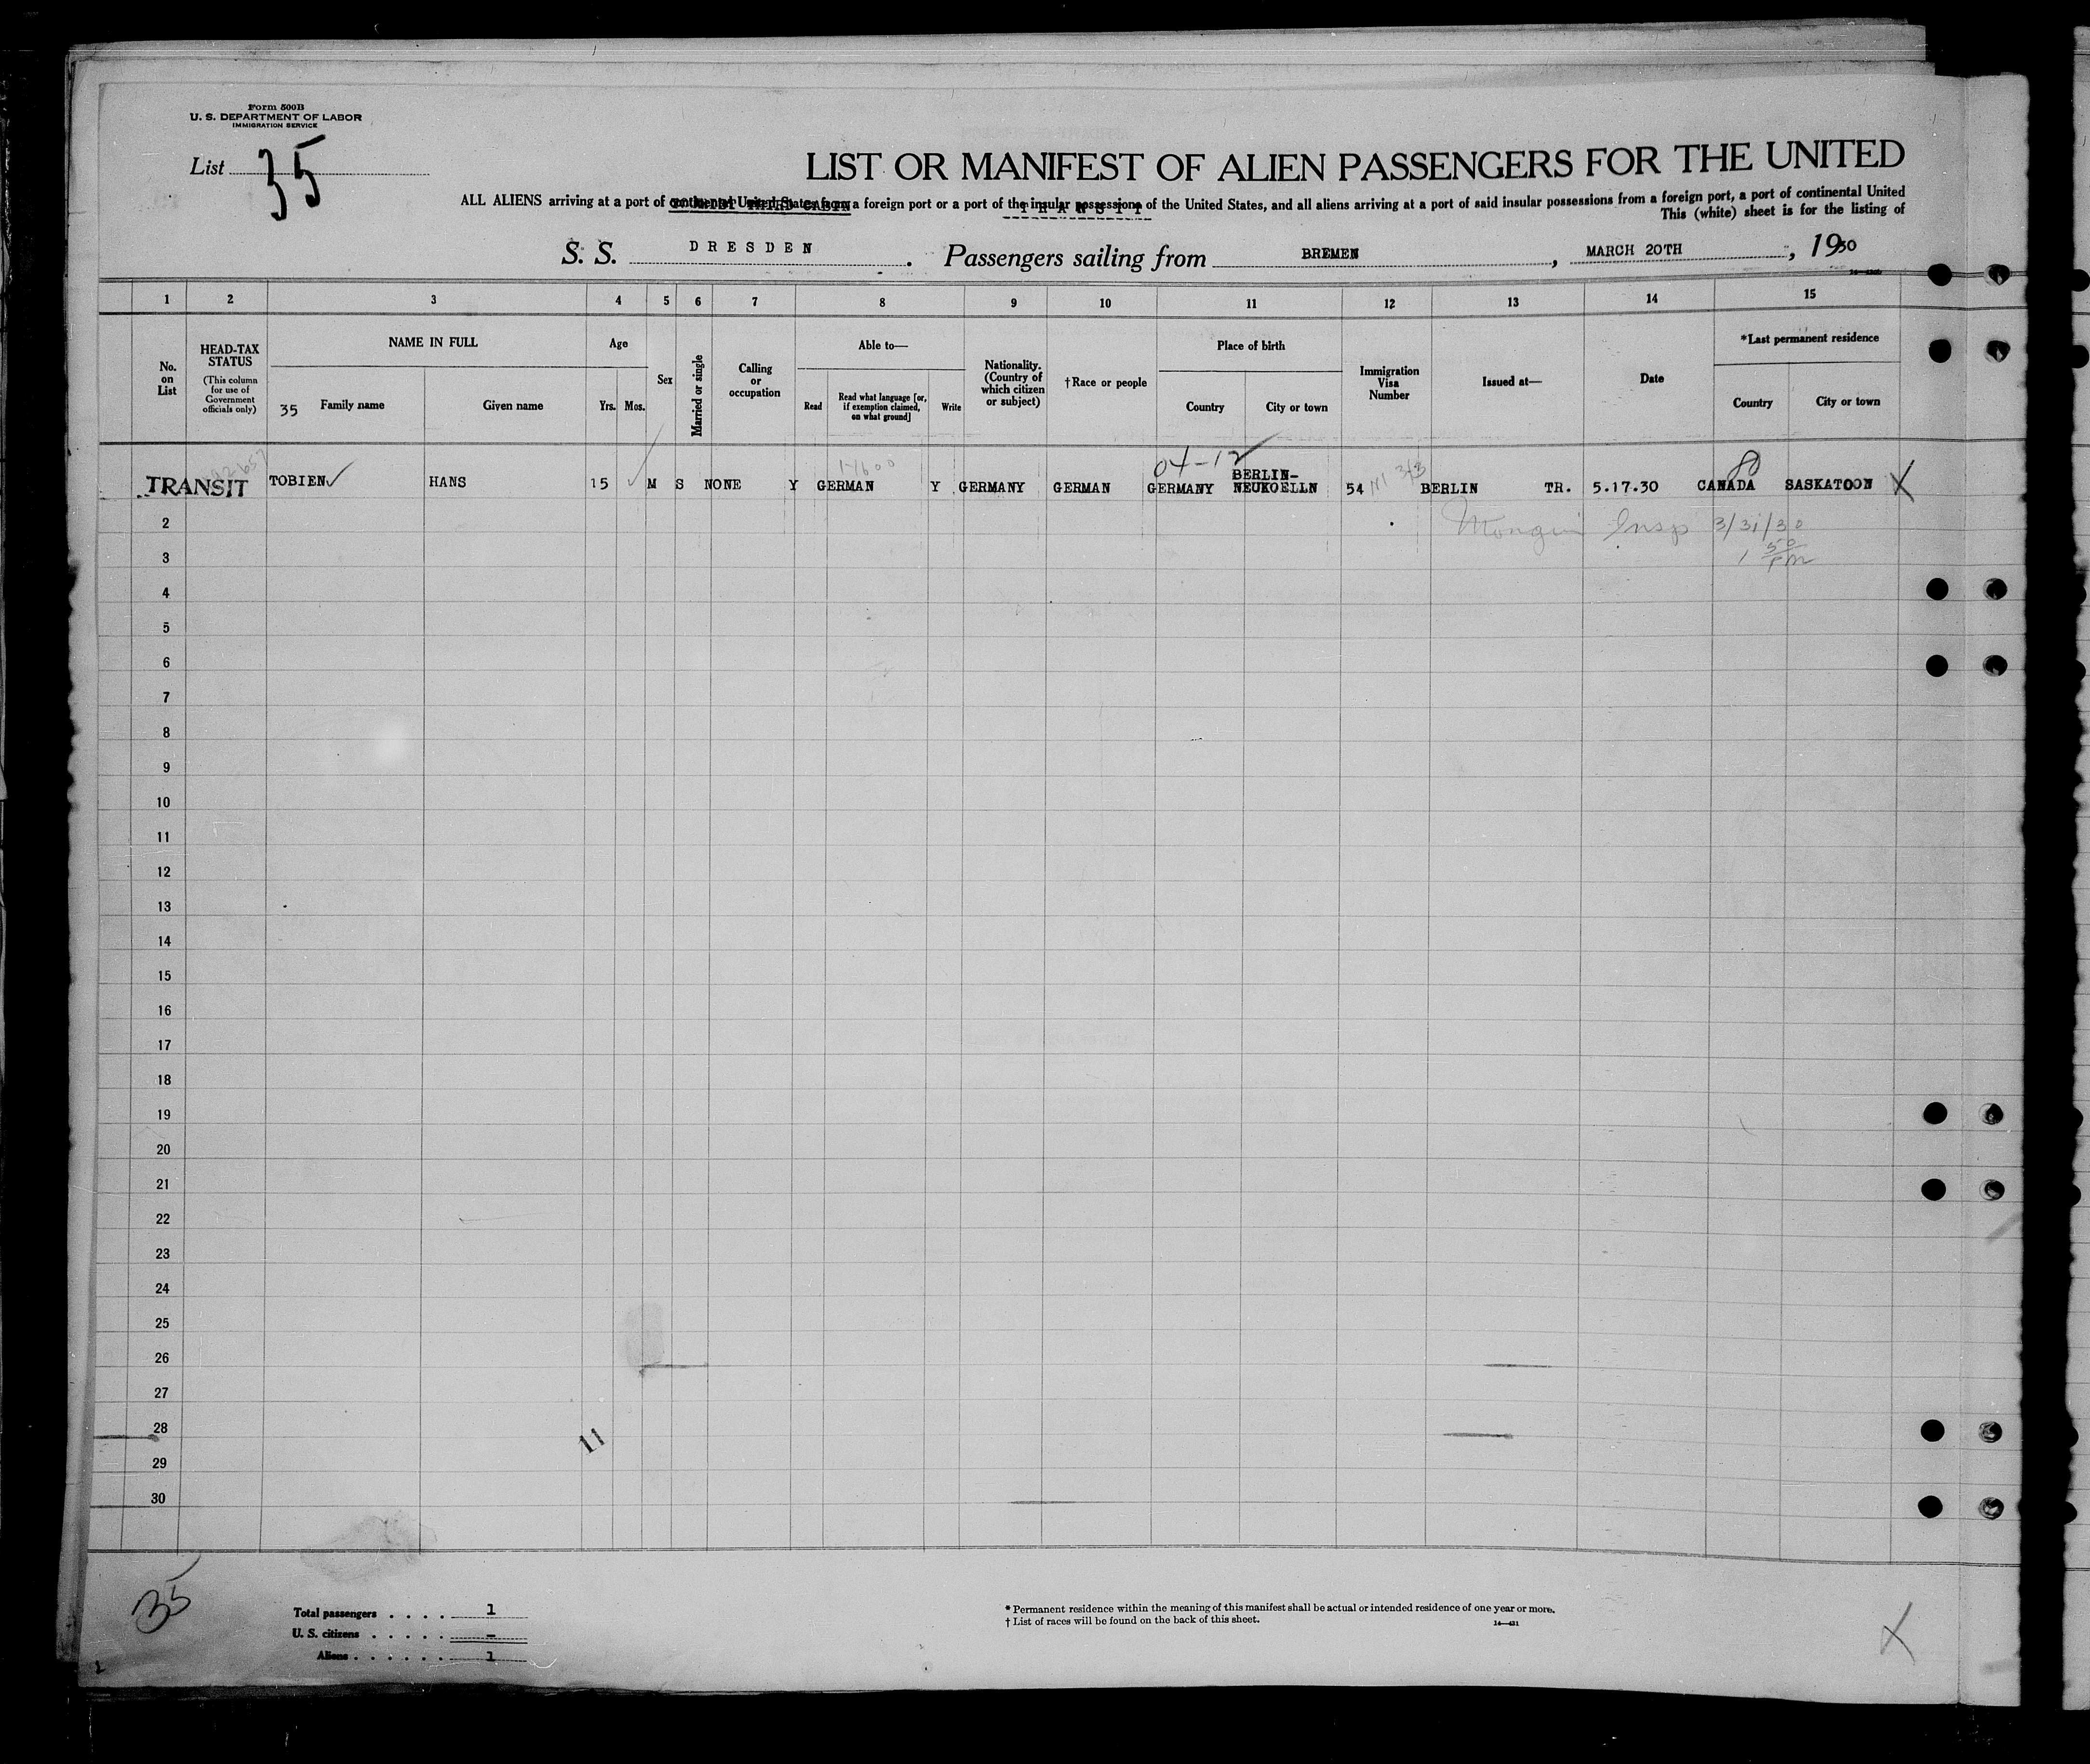 Form 500B
U. S. DEPARTMENT OF LABOR
IMMIGRATION SERVICE
List 35
LIST OR MANIFEST OF ALIEN PASSENGERS FOR THE UNITED
ALL ALIENS arriving at a port of continental United States from a foreign port or a port of the insular possessions of the United States, and all aliens arriving at a port of said insular possessions from a foreign port, a port of continental United
TRANSIT
This (white) sheet is for the listing of
S. S. DRESDEN. Passengers sailing from BREMEN, MARCH 20TH, 1930
1 2 3 4 5 6 7 8 9 10 11 12 13 14 15
No. on List
HEAD-TAX STATUS
(This column for use of Government officials only)
NAME IN FULL
35 Family name
Given name
Age
Yrs. Mos.
Sex
Married or single
Calling or occupation
Able to—
Read
Read what language [or, if exemption claimed, on what ground]
Write
Nationality. (Country of which citizen or subject)
†Race or people
Place of birth
Country
City or town
Immigration Visa Number
Issued at—
Date
*Last permanent residence
Country
City or town
04-12
TRANSIT TOBIEN HANS 15 M S NONE Y GERMAN Y GERMANY GERMAN GERMANY BERLIN-NEUKOELLN 54 BERLIN TR. 5.17.30 CANADA SASKATOON X
2 Insp 3/31/30
3 1 50 PM
4
5
6
7
8
9
10
11
12
13
14
15
16
17
18
19
20
21
22
23
24
25
26
27
28
11
29
30
35
Total passengers . . . . 1
U. S. citizens . . . . . –
Aliens . . . . . . 1
* Permanent residence within the meaning of this manifest shall be actual or intended residence of one year or more.
† List of races will be found on the back of this sheet.
X